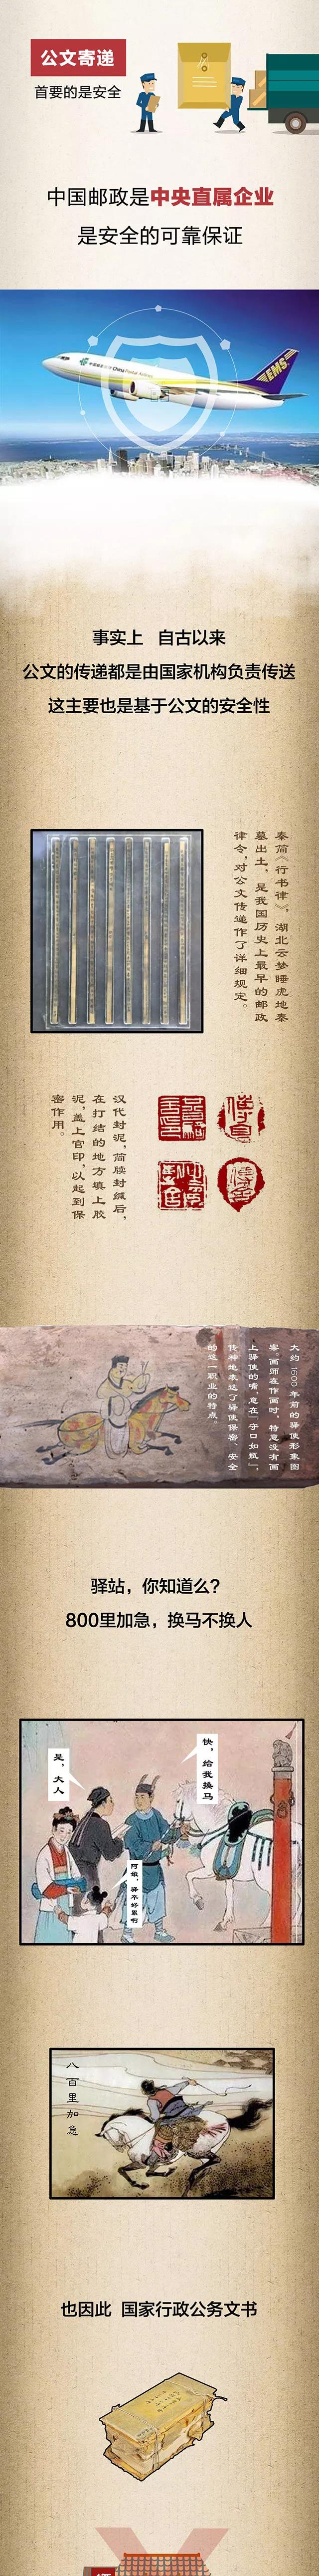 公文寄递
首要的是安全
中国邮政是中央直属企业
是安全的可靠保证
China Postal Airlines
EMS
事实上 自古以来
公文的传递都是由国家机构负责传送
这主要也是基于公文的安全性
秦简《行书律》，湖北云梦睡虎地秦
墓出土，是我国历史上最早的邮政
律令，对公文传递作了详细规定。
汉代封泥，简牍封缄后，
在打结的地方填上胶
泥，盖上官印，以起到保
密作用。
大约1600年前的驿使形象图
案。画师在作画时，特意没有画
上驿使的嘴，意在“守口如瓶”，
传神地表达了驿使保密、安全
的这一职业的特点。
驿站，你知道么？
800里加急，换马不换人
快，给我换马
是，大人
阿娘，驿卒好累啊
八百里加急
也因此 国家行政公务文书